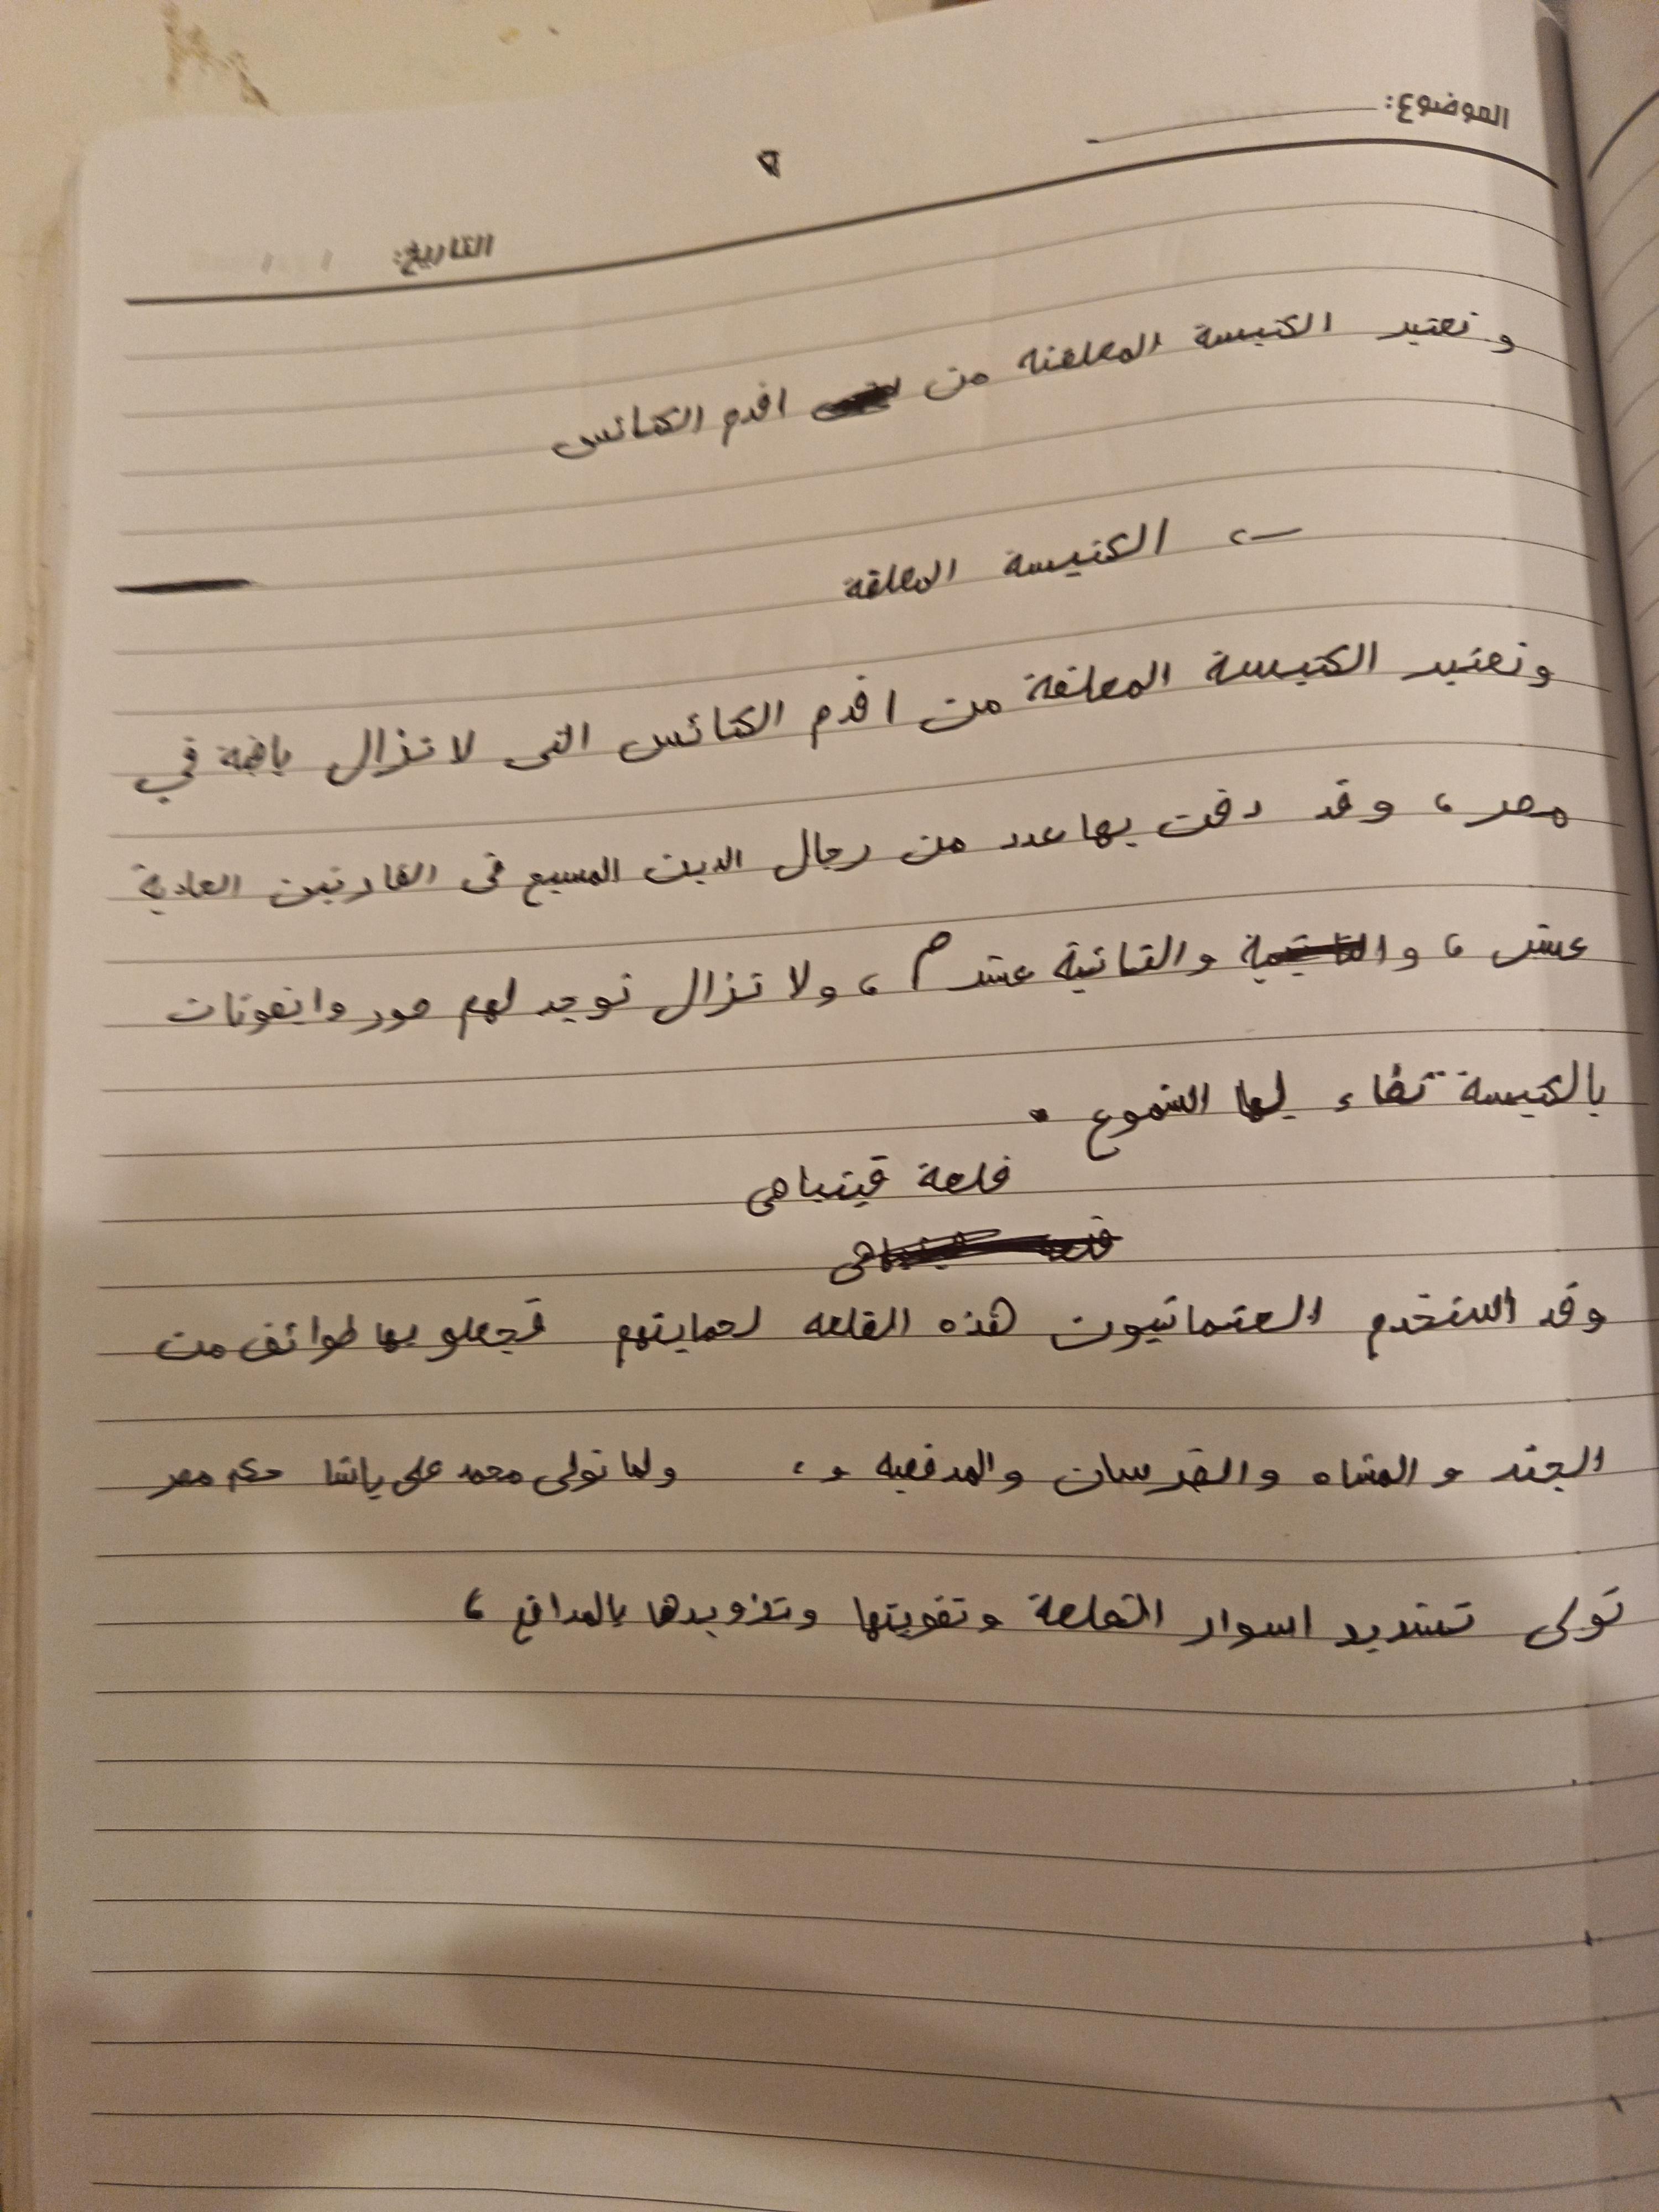 الموضوع:
التاريخ: / /
وتعتبر الكنيسة المعلقنه من اقدم الكنائس
الكنيسة المعلقة
وتعتبر الكنيسة المعلقة من اقدم الكنائس التى لا تزال باقية في
مصر، وقد دفن بها عدد من رجال الدين المسيح فى القارنين الحادية
عشر، و والثانية عشر م، ولا تزال توجد لهم صور وايقونات
بالكنيسة تضاء لها الشموع .
قلعة قيتباهى
وقد استخدم العثمانيون هذه القلعه لحمايتهم فجعلو بها طوائف من
الجند و المشاه والفرسان والمدفعيه و، ولما تولى محمد على باشا حكم مصر
تولى تشديد اسوار القلعة وتقويتها وتزويدها بالمدافع،